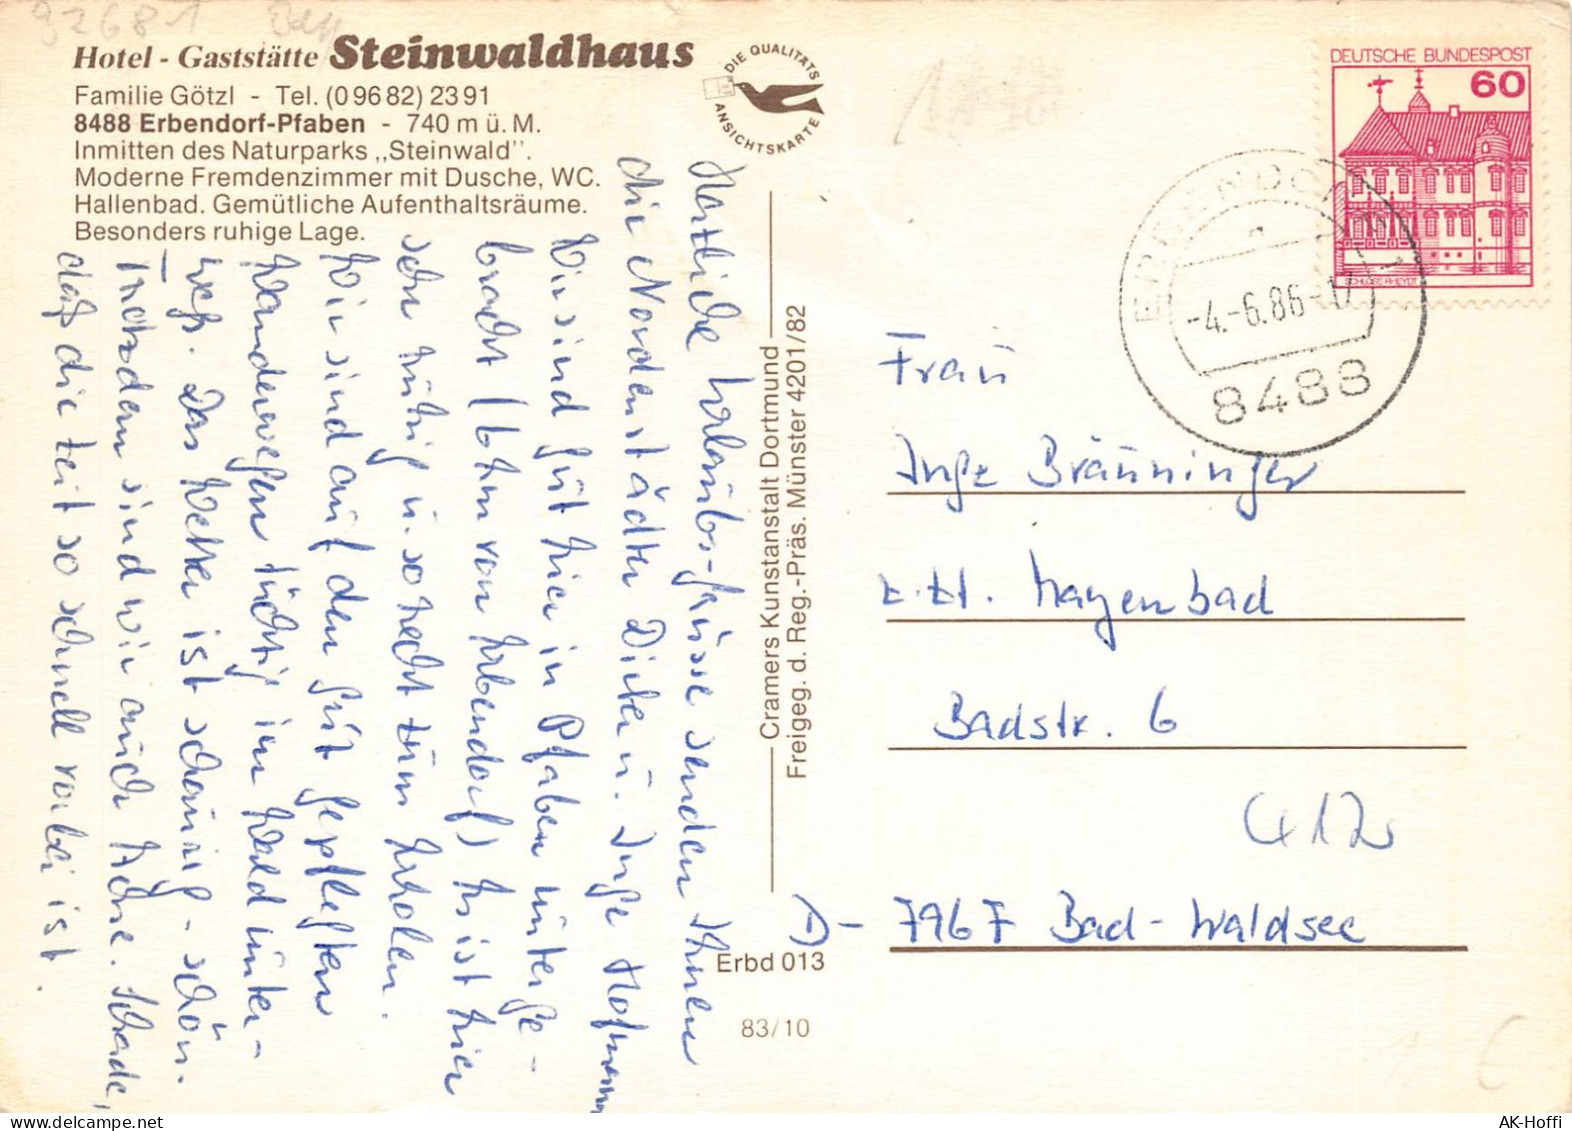 92681
Hotel - Gaststätte Steinwaldhaus
Familie Götzl - Tel. (0 96 82) 23 91
8488 Erbendorf-Pfaben - 740 m ü. M.
Inmitten des Naturparks „Steinwald".
Moderne Fremdenzimmer mit Dusche, WC.
Hallenbad. Gemütliche Aufenthaltsräume.
Besonders ruhige Lage.
DIE QUALITÄTS
ANSICHTSKARTE
DEUTSCHE BUNDESPOST
60
SCHLOSS RHEYDT
ERBENDORF
1
-4.-6.86-17
8488
Herzliche Urlaubs-grüsse senden Ihnen
die Nordenstädter Dieter u. Inge Hofmann
Wir sind gut hier in Pfaben unterge-
bracht (6 km von Erbendorf) Es ist hier
sehr ruhig u. so recht zum Erholen.
Wir sind auf den gut gepflegten
Wanderwegen tüchtig im Wald unter-
wegs. Das Wetter ist schaurig-schön.
Trotzdem sind wir auch höhe. Schade,
daß die Zeit so schnell vorbei ist.
Cramers Kunstanstalt Dortmund
Freigeg. d. Reg.-Präs. Münster 4201/82
Erbd 013
83/10
Frau
Inge Bräuninger
z.Zt. Mayenbad
Badstr. 6
412
D- 7967 Bad-Waldsee
AK-Hoffi